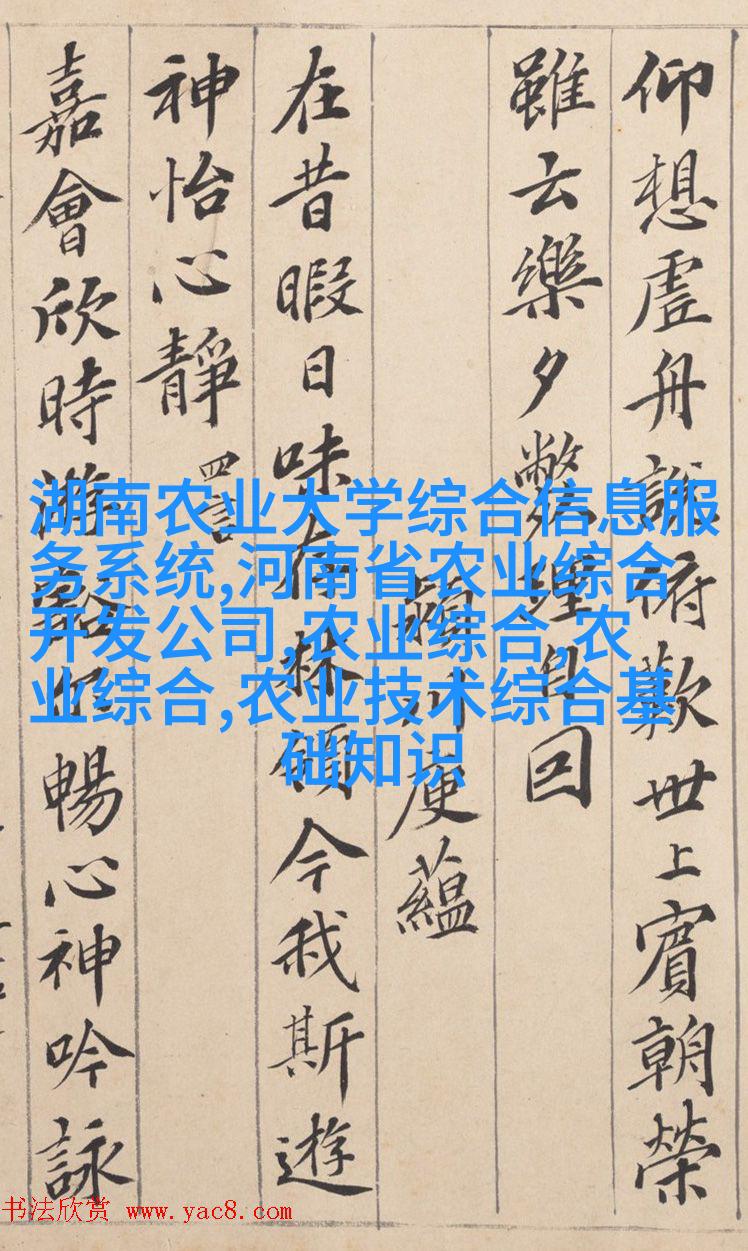 仰想虗舟說俯歎世上賓朝榮
雖云樂夕弊理自回
潁川庾蘊
在昔暇日味存林嶺今我斯遊
神怡心靜
四言
嘉會欣時游豁尔暢心神吟詠
湖南农业大学综合信息服
务系统,河南省农业综合
开发公司,农业综合,农
业综合,农业技术综合基
础知识
书法欣赏 www.yac8.com